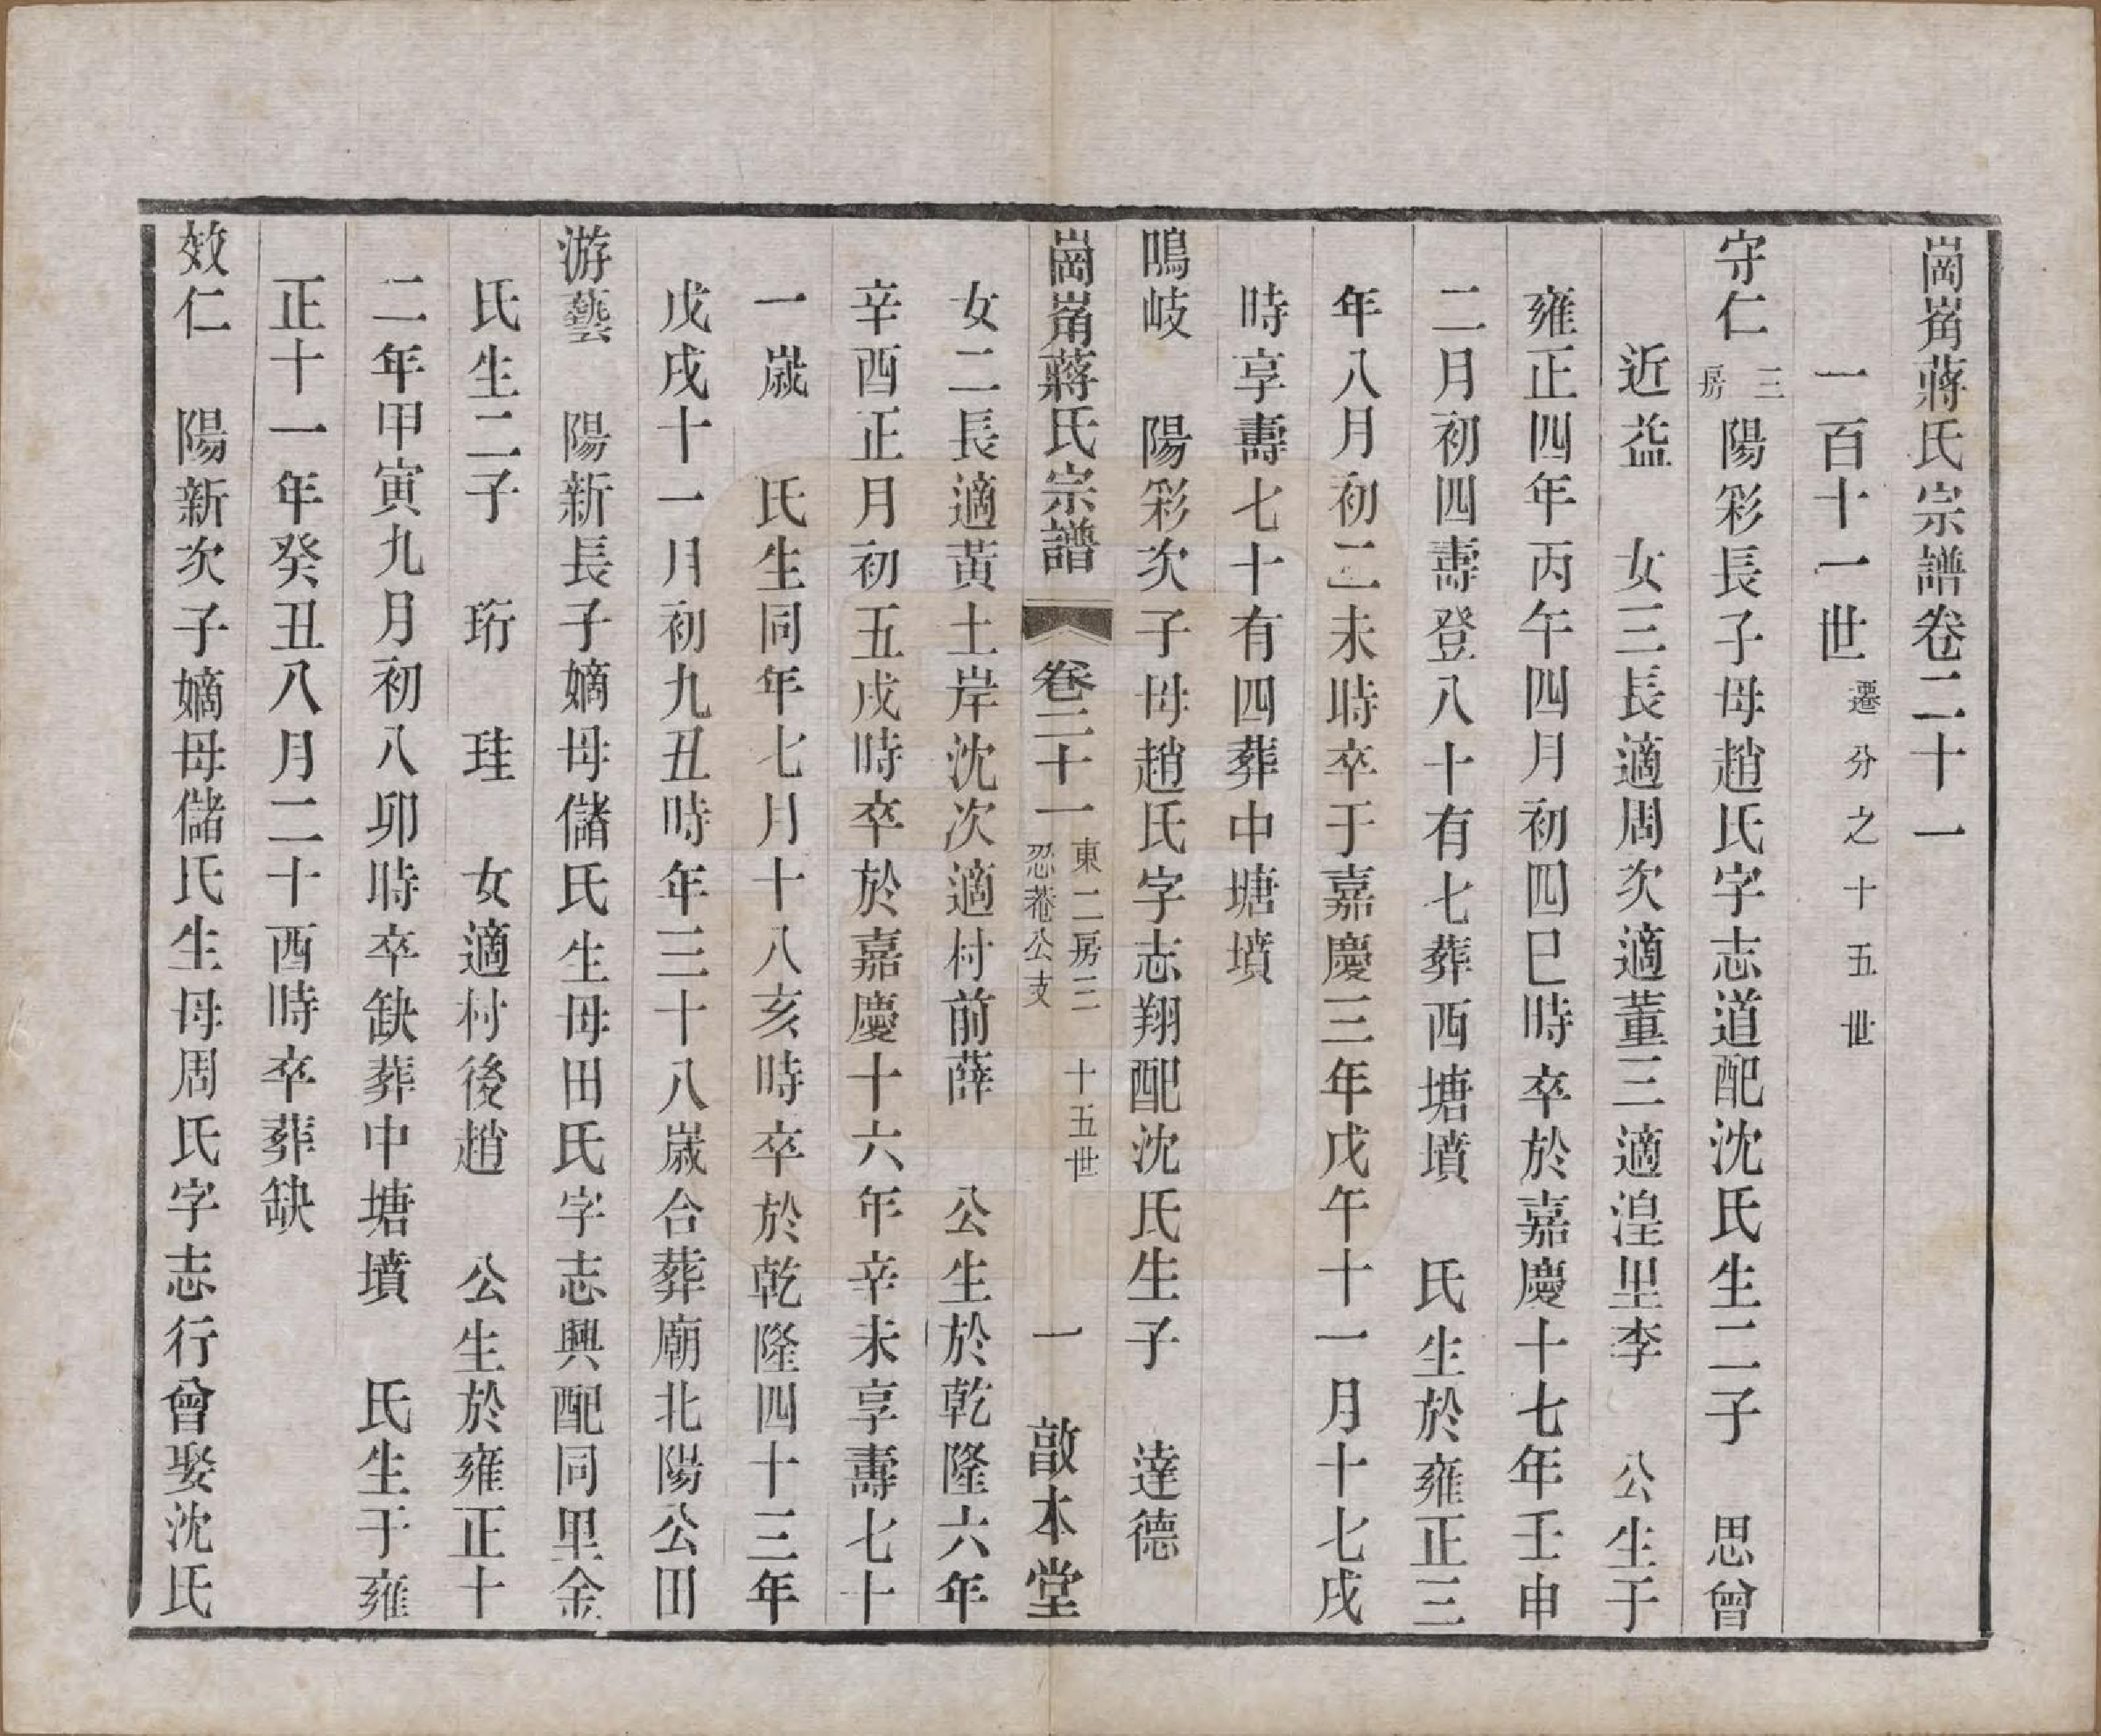 崗崙蔣氏宗譜卷二十一
一百十一世 遷分之十五世
守仁 三房 陽彩長子母趙氏字志道配沈氏生二子 思曾
近益 女三長適周次適董三適湟里李 公生于
雍正四年丙午四月初四巳時卒於嘉慶十七年壬申
二月初四壽登八十有七葬西塘墳 氏生於雍正三
年八月初二未時卒于嘉慶三年戊午十一月十七戌
時享壽七十有四葬中塘墳
鳴岐 陽彩次子母趙氏字志翔配沈氏生子 達德
崗崙蔣氏宗譜 卷二十一 東二房三忍菴公支 十五世 一 敦本堂
女二長適黃土岸沈次適村前薛 公生於乾隆六年
辛酉正月初五戌時卒於嘉慶十六年辛未享壽七十
一歲 氏生同年七月十八亥時卒於乾隆四十三年
戊戌十一月初九丑時年三十八歲合葬廟北陽公田
游藝 陽新長子嫡母儲氏生母田氏字志興配同里金
氏生二子 珩 珪 女適村後趙 公生於雍正十
二年甲寅九月初八卯時卒缺葬中塘墳 氏生于雍
正十一年癸丑八月二十酉時卒葬缺
效仁 陽新次子嫡母儲氏生母周氏字志行曾娶沈氏